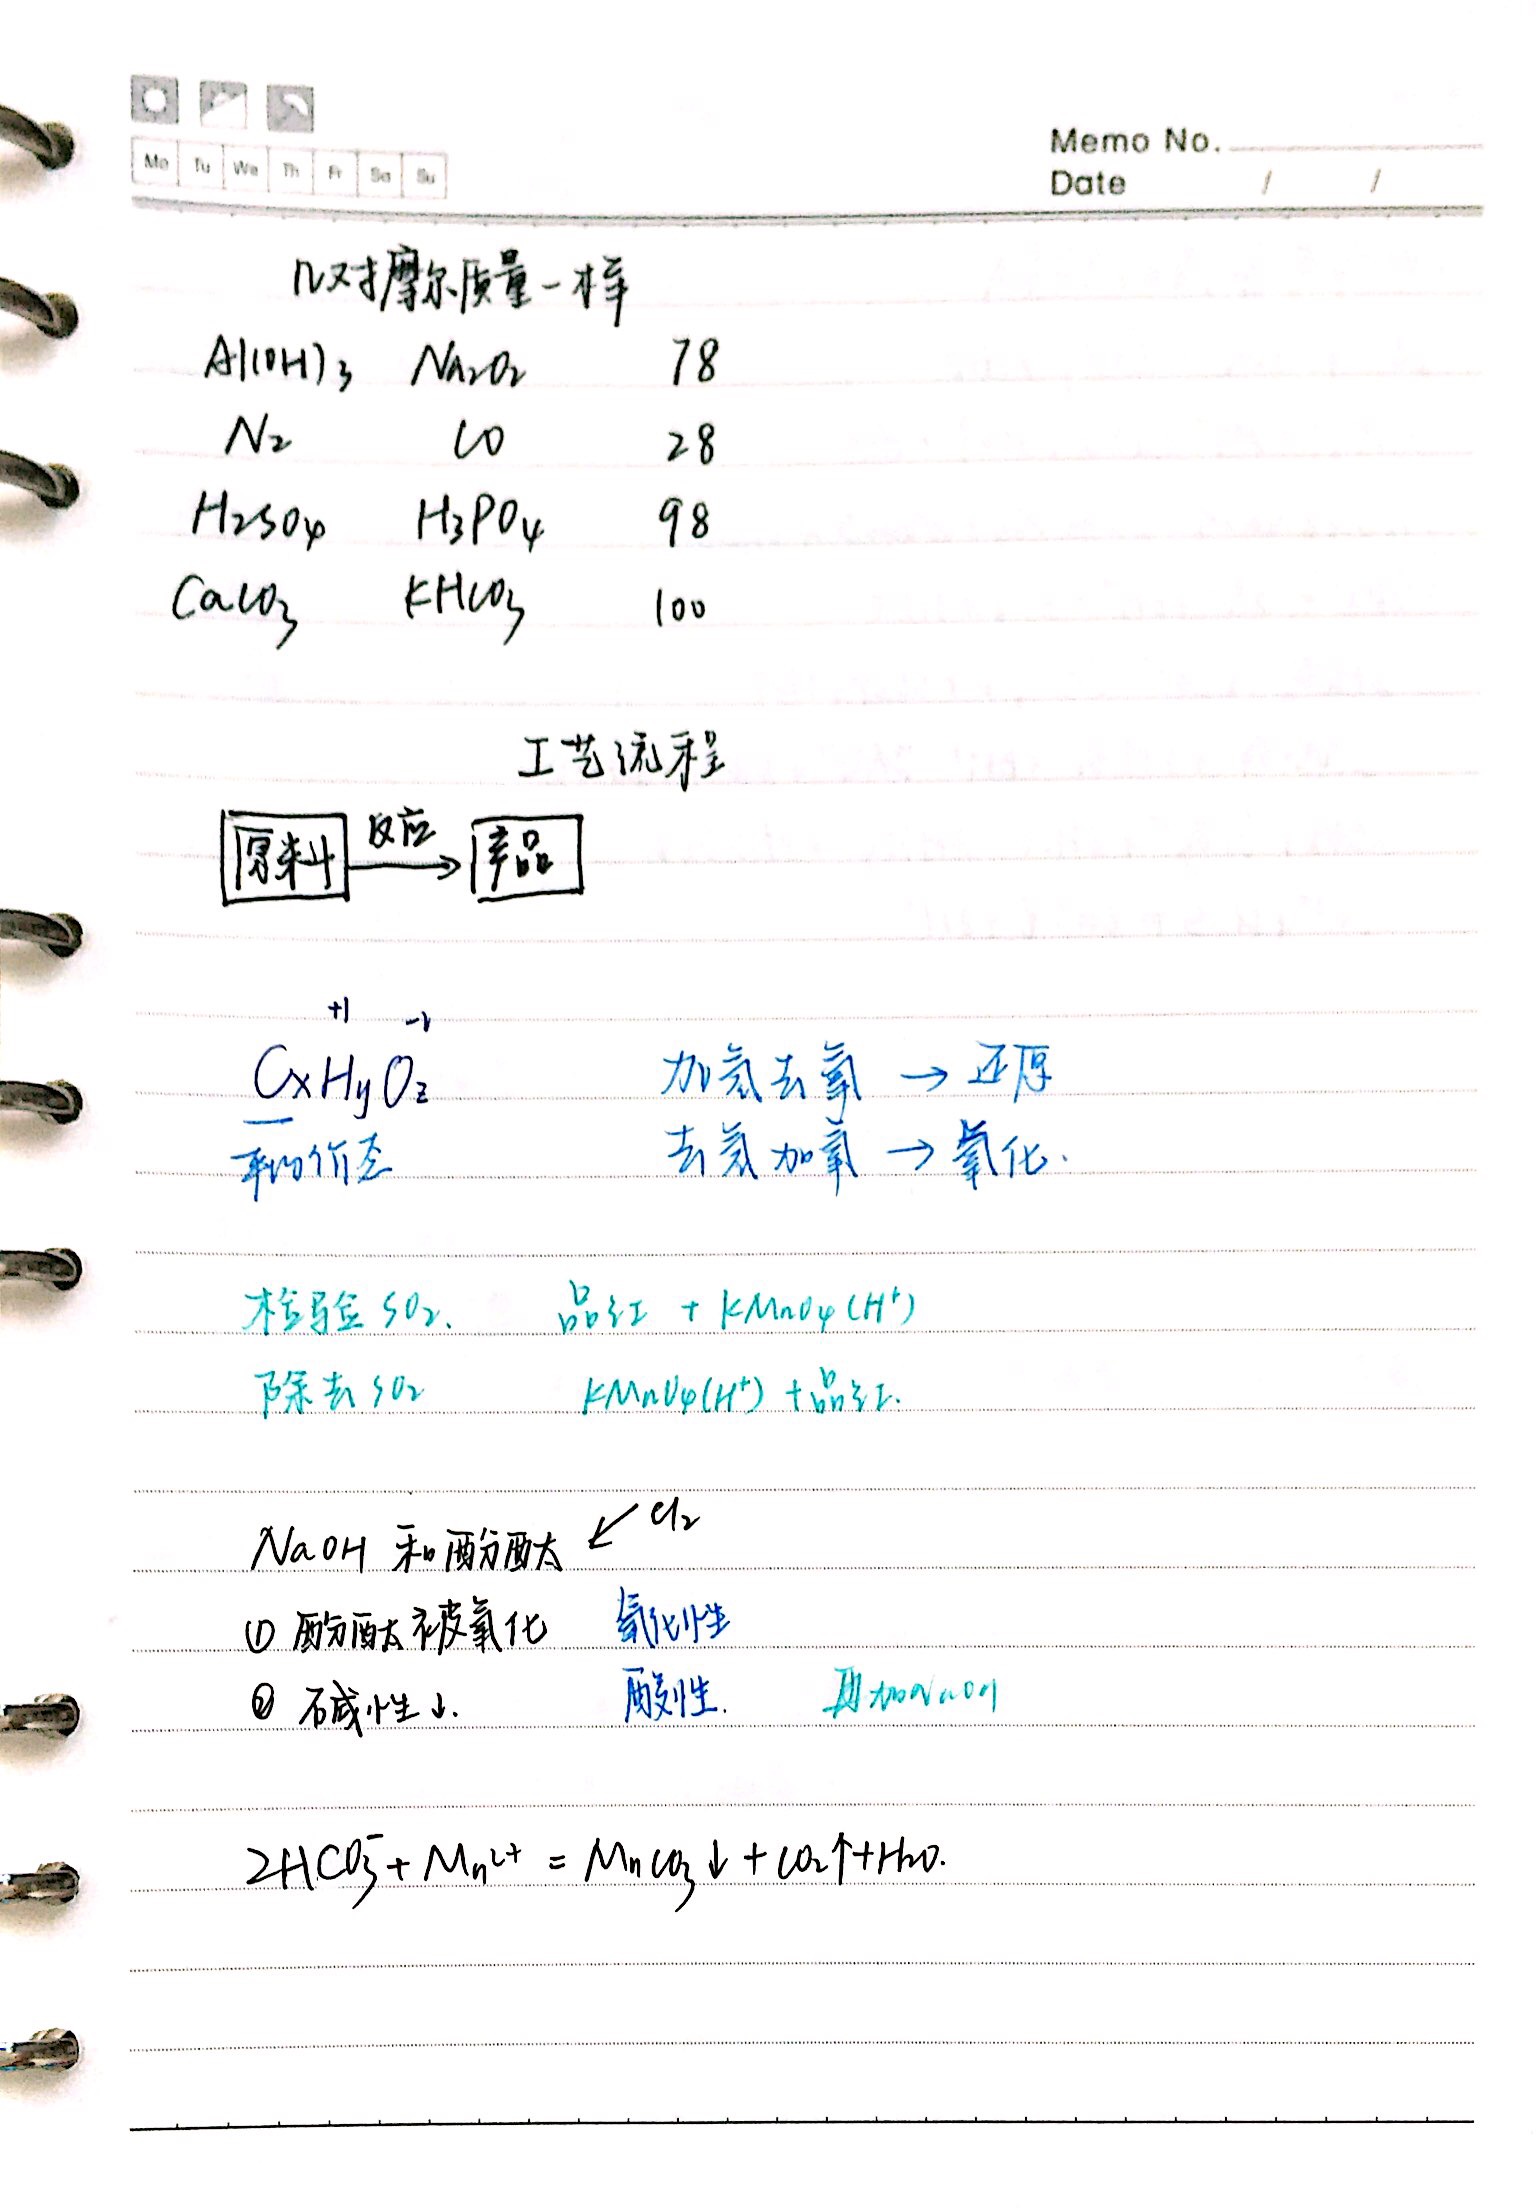 Mo Tu We Th Fr Sa Su
Memo No.
Date / /
几对摩尔质量一样
Al(OH)3 Na2O2 78
N2 CO 28
H2SO4 H3PO4 98
CaCO3 KHCO3 100
工艺流程
原料 反应→ 产品
+1 -2
CxHyOz 加氢去氧 → 还原
平均价态 去氢加氧 → 氧化.
检验SO2. 品红 + KMnO4(H+)
除去SO2 KMnO4(H+) + 品红.
NaOH 和酚酞 ↙ Cl2
① 酚酞被氧化 氧化性
② 碱性↓. 酸性. 再加NaOH
2HCO3- + Mn2+ = MnCO3↓ + CO2↑ + H2O.